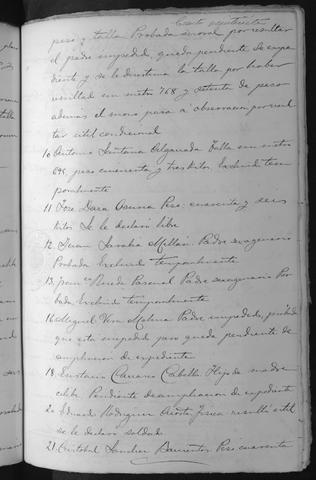 peso y talla Probada moral por resultar
el padre impedido, queda pendiente de expe
diente y se le destina la talla por haber
resultado con metro 768 y setenta de peso
ademas el mozo pasa a observacion por resul
tar util condicional
10 Antonio Santana Delgado Talla un metro
peso cuarenta y tres kilos Excluido tem
poralmente
11 Jose Daza Peso cuarenta y seis
kilos Se le declaró libre
12 Juan Sarabia Millan Padre sexagenario
Probada Excluido temporalmente
13 Rueda Pascual Padre sexagenario Pro
bada Excluido temporalmente
16 Miguel Vera Molina Padre impedido, probado
que esta impedido pero queda pendiente de
ampliacion de expediente
18 Eustasio Carrero Cabello Hijo de madre
celibe Pendiente de ampliacion de expediente
20 Eduardo Rodriguez Acosta resultó util
se le declaro soldado
21 Cristobal Sanchez Barrientos Peso cuarenta